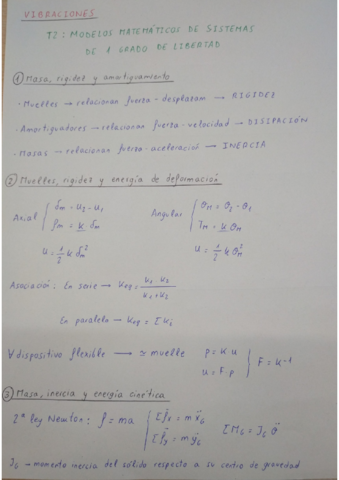 VIBRACIONES
T2: MODELOS MATEMÁTICOS DE SISTEMAS
DE 1 GRADO DE LIBERTAD
① Masa, rigidez y amortiguamiento
- Muelles → relacionan fuerza-desplazam → RIGIDEZ
- Amortiguadores → relacionan fuerza-velocidad → DISIPACIÓN
- Masas → relacionan fuerza-aceleració → INERCIA
② Muelles, rigidez y energía de deformació
Axial { δm = u2 - u1
fm = k δm
u = 1/2 k δm²
Angular { θm = θ2 - θ1
Tm = k θm
u = 1/2 k θm²
Asociación: En serie → keq = k1 · k2 / k1 + k2
En paralelo → keq = Σ ki
∀ dispositivo flexible → ≃ muelle p = K u
u = F · p } F = k⁻¹
③ Masa, inercia y energía cinética
2ª ley Newton: f = ma { Σfx = m ẍG
Σfy = m ÿG
ΣMG = JG θ̈
JG → momento inercia del sólido respecto a su centro de gravedad